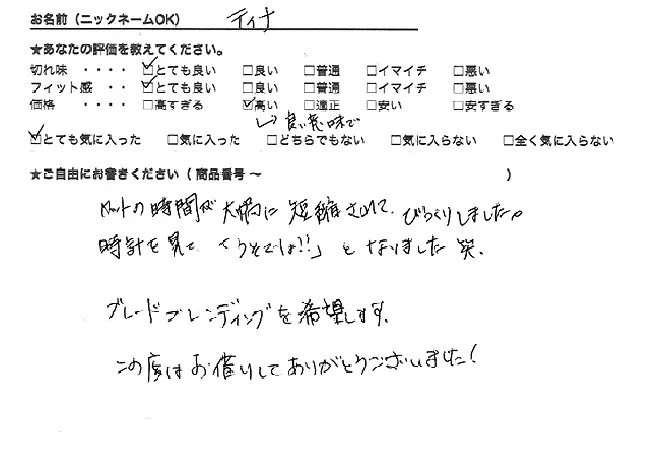 お名前（ニックネームOK） ティナ
★あなたの評価を教えてください。
切れ味 ・・・・ ☑とても良い □良い □普通 □イマイチ □悪い
フィット感 ・・ ☑とても良い □良い □普通 □イマイチ □悪い
価格 ・・・・ □高すぎる ☑高い □適正 □安い □安すぎる
↳良い意味で
☑とても気に入った □気に入った □どちらでもない □気に入らない □全く気に入らない
★ご自由にお書きください（ 商品番号～ ）
カットの時間が大幅に短縮されて、びっくりしました。
時計を見て、「うそでしょ!!」となりました笑。
ブレードブレンディングを希望します。
この度はお借りしてありがとうございました！